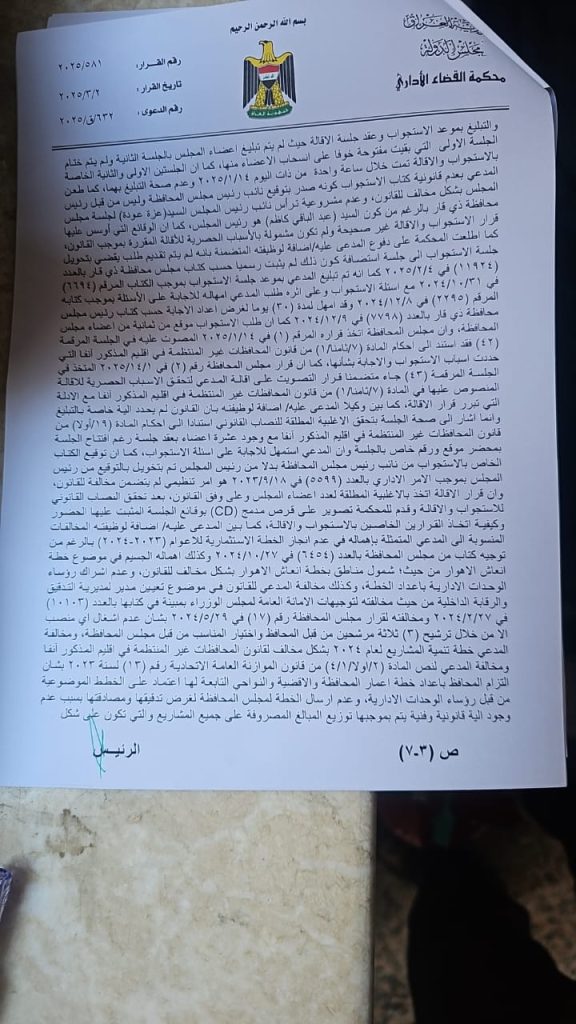 بسم الله الرحمن الرحيم
مجلس الدولة
محكمة القضاء الأداري
رقم القرار: ٢٠٢٥/٥٨١
تاريخ القرار: ٢٠٢٥/٣/٢
رقم الدعوى: ٦٣٢/ق/٢٠٢٥
والتبليغ بموعد الاستجواب وعقد جلسة الاقالة حيث لم يتم تبليغ اعضاء المجلس بالجلسة الثانية ولم يتم ختام
الجلسة الاولى التي بقيت مفتوحة خوفا على انسحاب الاعضاء منها، كما ان الجلستين الاولى والثانية الخاصة
بالاستجواب والاقالة تمت خلال ساعة واحدة من ذات اليوم ٢٠٢٥/١/١٤ وعدم صحة التبليغ بهما، كما طعن
المدعي بعدم قانونية كتاب الاستجواب كونه صدر بتوقيع نائب رئيس مجلس المحافظة وليس من قبل رئيس
المجلس بشكل مخالف للقانون، وعدم مشروعية ترأس نائب رئيس المجلس السيد(عزة عودة) لجلسة مجلس
محافظة ذي قار بالرغم من كون السيد (عبد الباقي كاظم) هو رئيس المجلس، كما ان الوقائع التي أوسس عليها
قرار الاستجواب والاقالة غير صحيحة ولم تكون مشمولة بالأسباب الحصرية للأقالة المقررة بموجب القانون،
كما اطلعت المحكمة على دفوع المدعى عليه/اضافة لوظيفته المتضمنة بانه لم يتم تقديم طلب يقضي بتحويل
جلسة الاستجواب الى جلسة استضافة كون ذلك لم يثبت رسميا حسب كتاب مجلس محافظة ذي قار بالعدد
(١١٩٢٤) في ٢٠٢٥/٢/٤ كما انه تم تبليغ المدعي بموعد جلسة الاستجواب بموجب الكتاب المرقم (٦٦٩٤)
في ٢٠٢٤/١٠/٣١ مع اسئلة الاستجواب وعلى اثره طلب المدعي امهاله للاجابة على الأسئلة بموجب كتابه
المرقم (٢٢٩٥) في ٢٠٢٤/١٢/٨ وقد امهل لمدة (٣٠) يوما لغرض اعداد الاجابة حسب كتاب رئيس مجلس
محافظة ذي قار بالعدد (٧٧٩٨) في ٢٠٢٤/١٢/٩ كما ان طلب الاستجواب موقع من ثمانية من اعضاء مجلس
المحافظة، وان مجلس المحافظة اتخذ قراره المرقم (١) في ٢٠٢٥/١/١٤ المصوت عليه في الجلسة المرقمة
(٤٢) فقد استند الى احكام المادة (٧/ثامنا/١) من قانون المحافظات غير المنتظمة في اقليم المذكور انفا التي
حددت اسباب الاستجواب والاجابة بشأنها، كما ان قرار مجلس المحافظة رقم (٢) في ٢٠٢٥/١/١٤ المتخذ في
الجلسة المرقمة (٤٣) جاء متضمنا قرار التصويت على اقالة المدعي لتحقق الاسباب الحصرية للاقالة
المنصوص عليها في المادة (٧/ثامنا/١) من قانون المحافظات غير المنتظمة في اقليم المذكور آنفا مع الادلة
التي تبرر قرار الاقالة، كما بين وكيلا المدعى عليه/ اضافة لوظيفته بان القانون لم يحدد الية خاصة بالتبليغ
وانما اشار الى صحة الجلسة بتحقق الاغلبية المطلقة للنصاب القانوني استنادا الى احكام المادة (١٩/اولا) من
قانون المحافظات غير المنتظمة في اقليم المذكور آنفا مع وجود عشرة اعضاء بعقد جلسة رغم افتتاح الجلسة
بمحضر موقع ورقم خاص بالجلسة وان المدعي استمهل للاجابة على اسئلة الاستجواب، كما ان توقيع الكتاب
الخاص بالاستجواب من نائب رئيس مجلس المحافظة بدلا من رئيس المجلس تم بتخويل بالتوقيع من رئيس
المجلس بموجب الامر الاداري بالعدد (٥٥٩٩) في ٢٠٢٣/٩/١٨ هو امر تنظيمي لم يتضمن مخالفة للقانون،
وان قرار الاقالة اتخذ بالاغلبية المطلقة لعدد اعضاء المجلس وعلى وفق القانون، بعد تحقق النصاب القانوني
للاستجواب والاقالة وقدم للمحكمة تصوير على قرص مدمج (CD) بوقائع الجلسة المثبت عليها الحضور
وكيفية اتخاذ القرارين الخاصين بالاستجواب والاقالة، كما بين المدعى عليه/ اضافة لوظيفته المخالفات
المنسوبة الى المدعي المتمثلة بإهماله في عدم انجاز الخطة الاستثمارية للاعوام (٢٠٢٣-٢٠٢٤) بالرغم من
توجيه كتاب من مجلس المحافظة بالعدد (٦٤٥٤) في ٢٠٢٤/١٠/٢٧ وكذلك اهماله الجسيم في موضوع خطة
انعاش الاهوار من حيث؛ شمول مناطق بخطة انعاش الاهوار بشكل مخالف للقانون، وعدم اشراك رؤساء
الوحدات الادارية باعداد الخطة، وكذلك مخالفة المدعي للقانون في موضوع تعيين مدير لمديرية التدقيق
والرقابة الداخلية من حيث مخالفته لتوجيهات الامانة العامة لمجلس الوزراء بمبينة في كتابها بالعدد (١٠١٠٣)
في ٢٠٢٤/٢/٢٧ ومخالفته لقرار مجلس المحافظة رقم (١٧) في ٢٠٢٤/٥/٢٩ بشان عدم اشغال اي منصب
الا من خلال ترشيح (٣) ثلاثة مرشحين من قبل المحافظ واختيار المناسب من قبل مجلس المحافظة، ومخالفة
المدعي خطة تنمية المشاريع لعام ٢٠٢٤ بشكل مخالف لقانون المحافظات غير المنتظمة في اقليم المذكور آنفا
ومخالفة المدعي لنص المادة (٢/اولا/٤/١) من قانون الموازنة العامة الاتحادية رقم (١٣) لسنة ٢٠٢٣ بشان
التزام المحافظ باعداد خطة اعمار المحافظة والاقضية والنواحي التابعة لها اعتماد على الخطط الموضوعية
من قبل رؤساء الوحدات الادارية، وعدم ارسال الخطة لمجلس المحافظة لغرض تدقيقها ومصادقتها بسبب عدم
وجود الية قانونية وفنية يتم بموجبها توزيع المبالغ المصروفة على جميع المشاريع والتي تكون على شكل
الرئيس
ص (٣-٧)